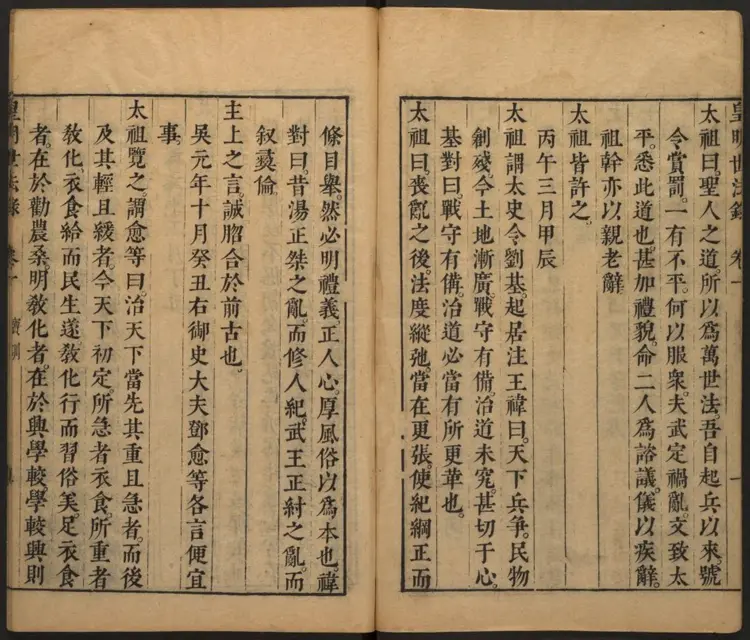 皇明世法錄 卷一 一
太祖曰聖人之道所以爲萬世法吾自起兵以來號
令賞罰一有不平何以服衆夫武定禍亂文致太
平悉此道也甚加禮貌命二人爲諮議儀以疾辭
祖幹亦以親老辭
太祖皆許之
丙午三月甲辰
太祖謂太史令劉基起居注王禕曰天下兵爭民物
創殘今土地漸廣戰守有備治道未究甚切于心
基對曰戰守有備治道必當有所更革也
太祖曰喪亂之後法度縱弛當在更張使紀綱正而
條目舉然必明禮義正人心厚風俗以爲本也禕
對曰昔湯正桀之亂而修人紀武王正紂之亂而
叙彞倫
主上之言誠脗合於前古也
吳元年十月癸丑右御史大夫鄧愈等各言便宜
事
太祖覽之謂愈等曰治天下當先其重且急者而後
及其輕且緩者今天下初定所急者衣食所重者
敎化衣食給而民生遂敎化行而習俗美足衣食
者在於勸農桑明敎化者在於興學較學較興則
皇明世法錄 卷一